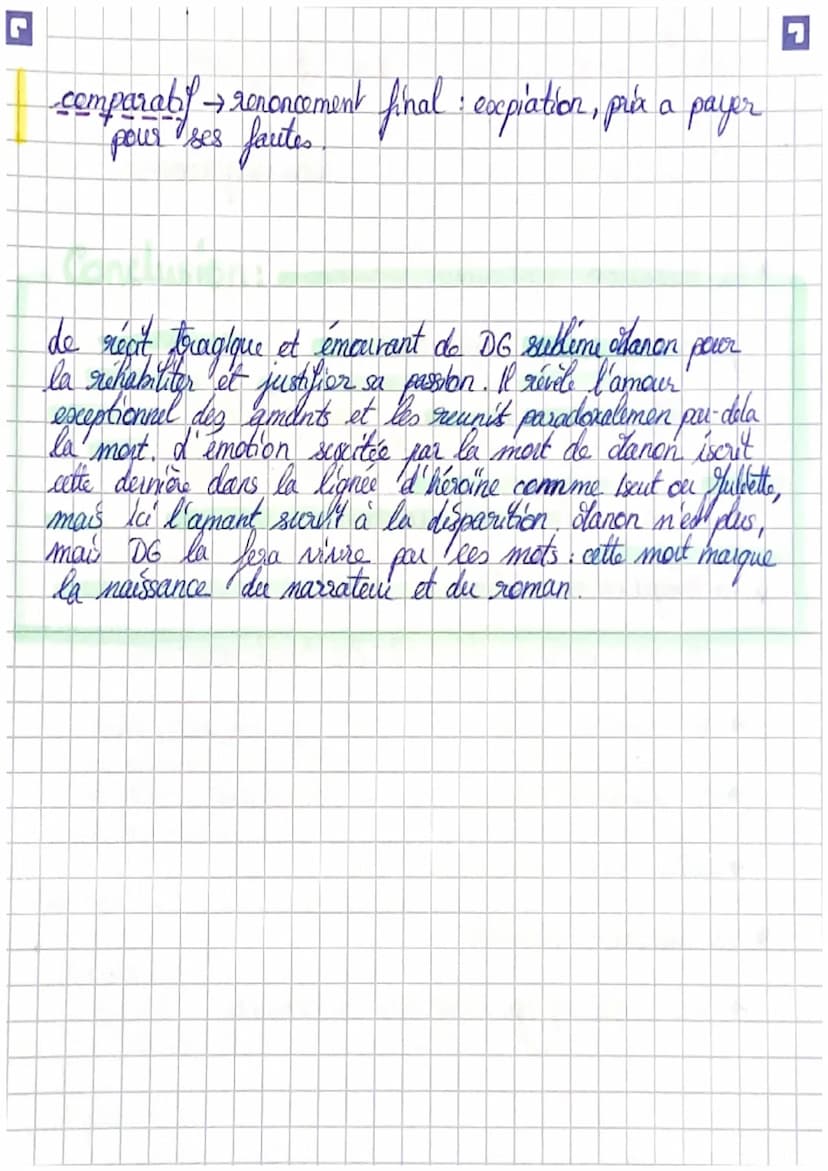 comparatif → renoncement final : excpiation, prix a payer
pour ses fautes.
Conclusion :
Le récit tragique et émouvant de DG sublime Manon pour
la réhabiliter et justifier sa passion. Il révèle l'amour
exceptionnel des amants et les reunit paradoxalemen par-dela
la mort. L'émotion suscitée par la mort de Manon iscrit
cette dernière dans la lignée d'héroïne comme Iseut ou Juliette,
mais ici l'amant survit à la disparition. Manon n'est plus,
mais DG la fera vivre par ces mots : cette mort marque
la naissance du narrateur et du roman.